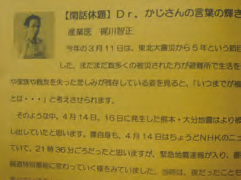 【閑話休題】Dr．かじさんの言葉の輝き
産業医　梶川智正
今年の３月11日は、東北大震災から５年という節
した。まだまだ数多くの被災された方が避難所で生活を
や家族や親友を失った悲しみが残存している姿を見ると、「いつまでが被
とは・・・」と考えさせられます。
そのような中、４月14日、16日に発生した熊本・大分地震により被
い出していたと思います。僕自身も、４月14日はちょうどNHKのニュ
ていて、21時36分ごろだったと思いますが、緊急地震速報が入り、最
報道特別番組に変わっていく様をみていました。当時は、